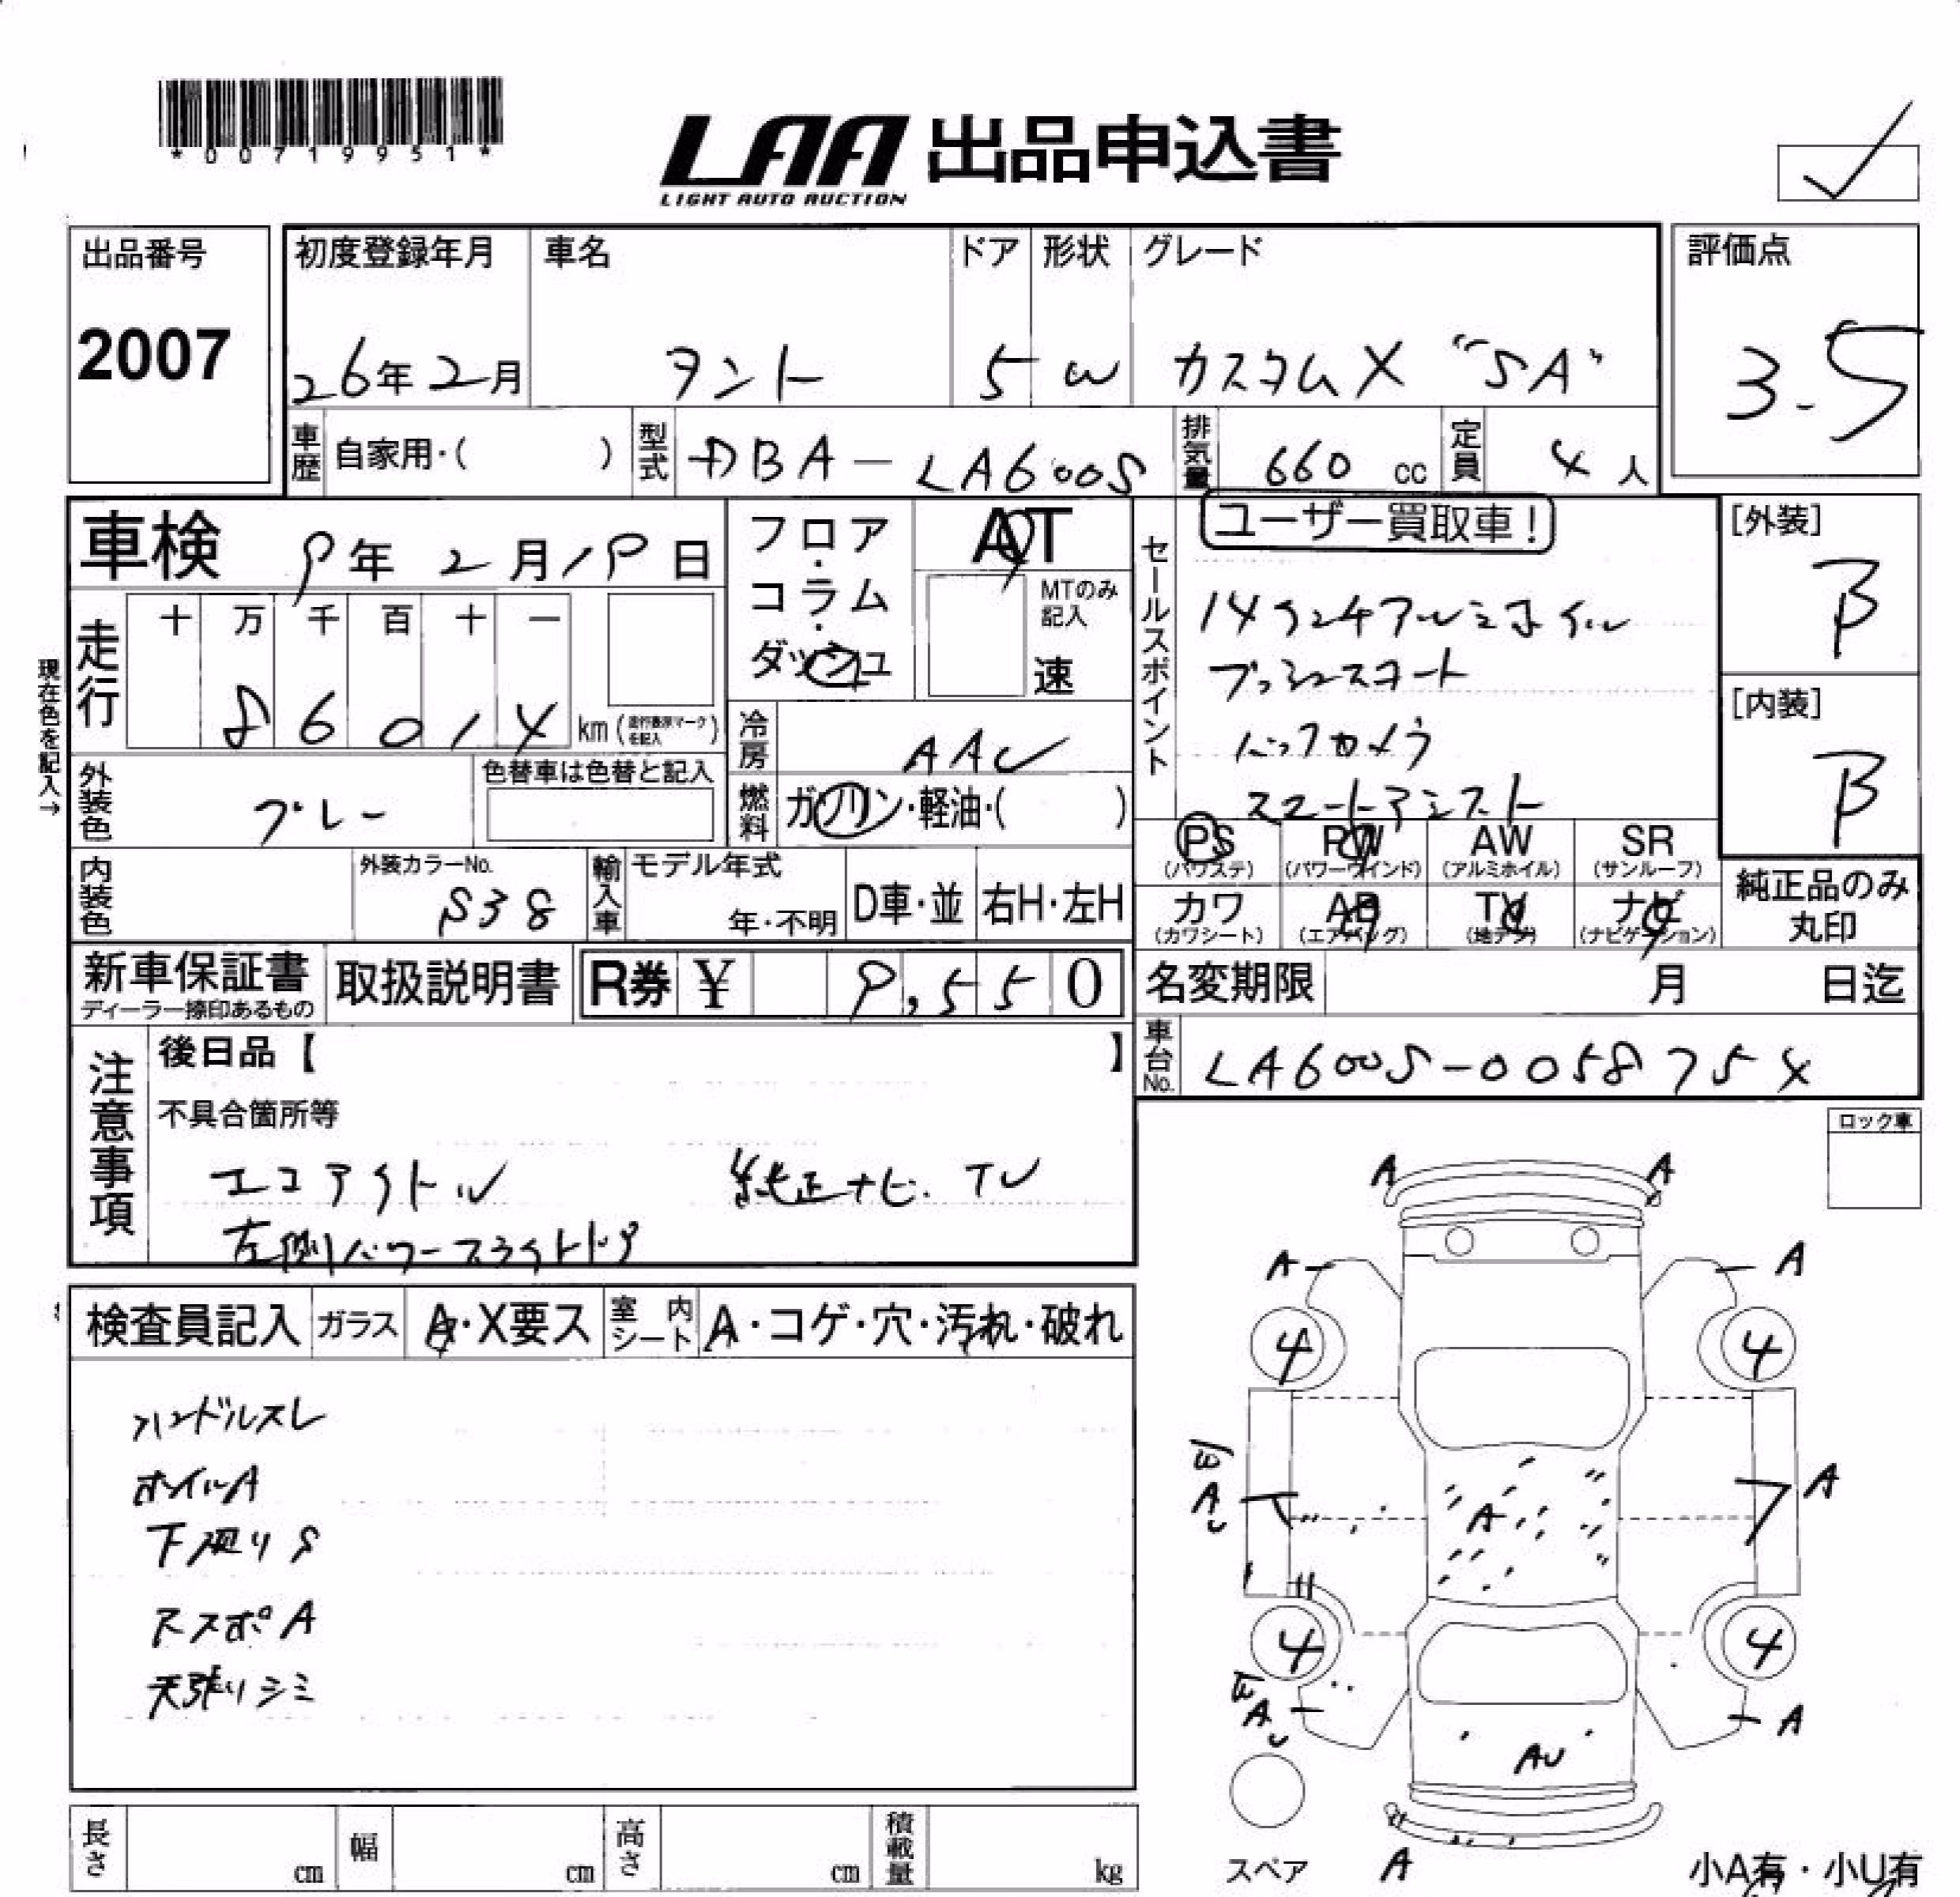 *00719951*
LAA 出品申込書
LIGHT AUTO AUCTION
出品番号
2007
初度登録年月
26年2月
車名
タント
ドア
5
形状
W
グレード
カスタムX "SA"
評価点
3.5
車歴
自家用・( )
型式
DBA-LA600S
排気量
660 cc
定員
4 人
車検 9年 2月19日
フロア・コラム・ダッシュ
AT
MTのみ記入
速
セールスポイント
ユーザー買取車!
14インチアルミホイル
プッシュスタート
バックカメラ
スマートアシスト
[外装]
B
[内装]
B
現在色を記入→
走行
十 万 千 百 十 一
86014 km (走行表示マークを記入)
冷房
AAC
外装色
グレー
色替車は色替と記入
燃料
ガソリン・軽油・( )
PS
(パワステ)
PW
(パワーウインド)
AW
(アルミホイル)
SR
(サンルーフ)
内装色
外装カラーNo.
S38
輸入車
モデル年式
年・不明
D車・並
右H・左H
カワ
(カワシート)
AB
(エアバッグ)
TV
(地デジ)
ナビ
(ナビゲーション)
純正品のみ
丸印
新車保証書
ディーラー捺印あるもの
取扱説明書
R券 ¥ 9,550
名変期限 月 日迄
車台No.
LA600S-0058754
注意事項
後日品【 】
不具合箇所等
エコアイドル 純正ナビ. TV
左側パワースライドドア
ロック車
検査員記入
ガラス
A・X要ス
室内シート
A・コゲ・穴・汚れ・破れ
ハンドルスレ
ホイルA
下廻りS
天張りシミ
A A
A A
4 4
A A
A
4 4
A A
AU
A
スペア
小A有・小U有
長さ cm
幅 cm
高さ cm
積載量 kg